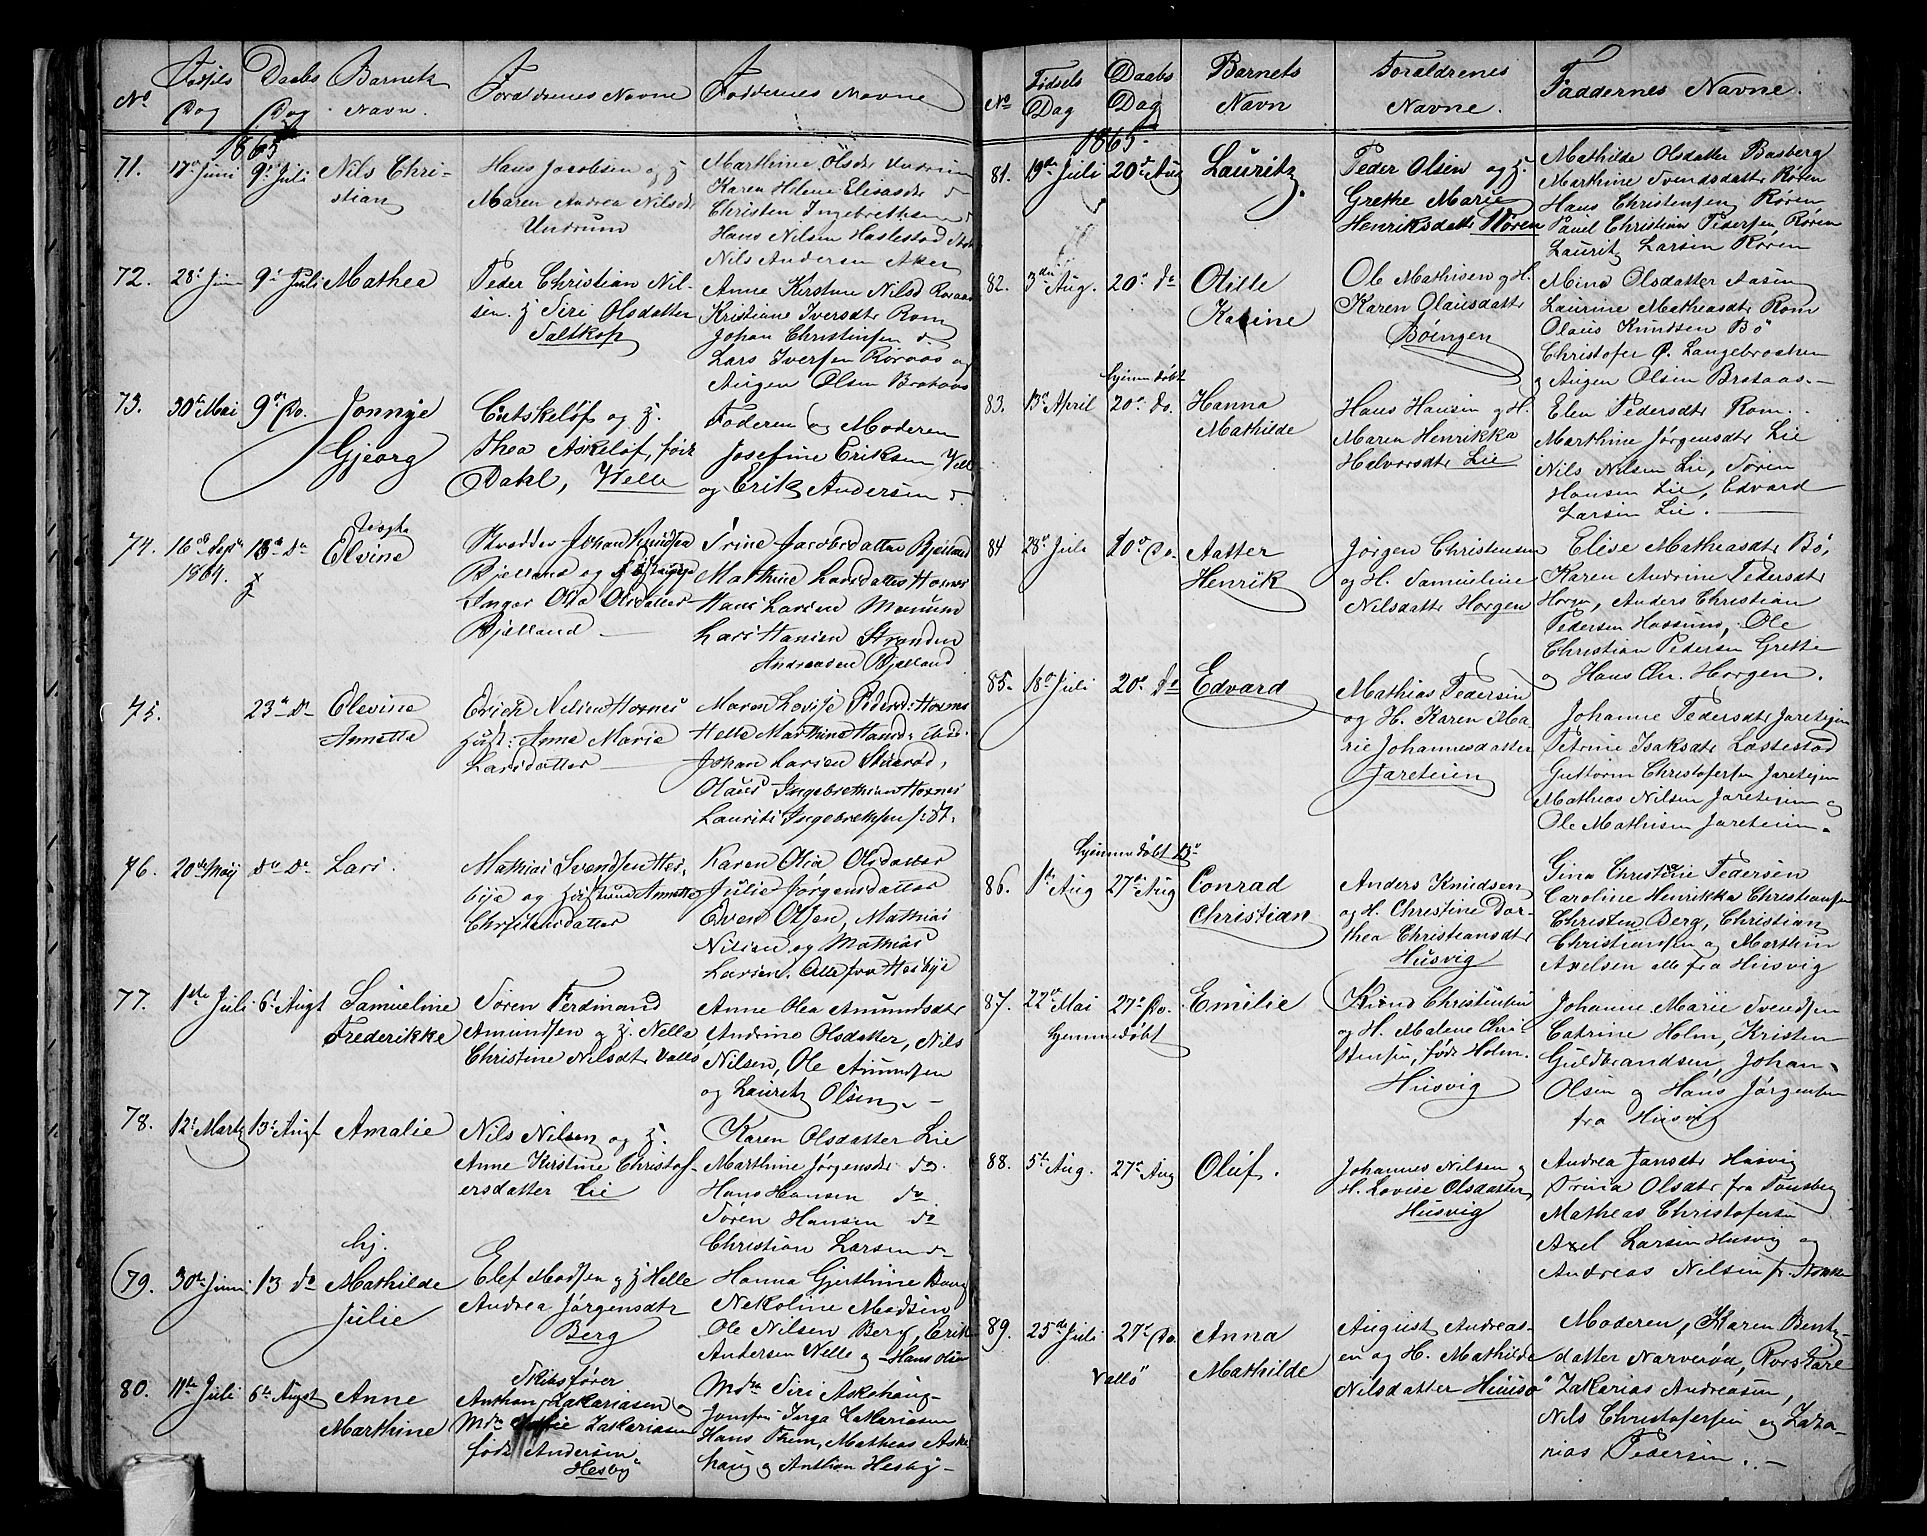 No Fødsels Dag Daabs Dag Barnets Navn. Forældrenes Navne Faddernes Navne
1865
71. 17de Juni 9de Juli Nils Chri-
stian
Hans Jacobsen og H.
Maren Andrea Nilsdr
Undrum
Marthine Olsdr Undrum
Karen Helene Eliasdr do
Christen Ingebrethsen do
Hans Nilsen Haslestad
Nils Andersen Aker
72. 28de Juni 9de Juli Mathea
Peder Christian Nil-
sen. H. Siri Olsdatter
Saltkop
Anne Kirstine Nilsd Roraas
Kristiane Iversdtr Rom
Johan Christinsen do
Lars Iversen Roraas og
Augen Olsen Brataas
73. 30te Mai 9de Do. Jonnye
Gjeorg
Cutskeløf og H.
Thea Askeløf, født
Dahl, Welle
Faderen og Moderen
Josefine Eriksen Vell
og Erik Andersen do
74. 16de Sept 1864. 13de do Elvine
Johan Knudsen
Bjelland og
Inger Olia Olsdatter
Bjelland
Trine Jacobsdatter Bjelland
Mathine Larsdatter Hoxnes
Hans Larsen
Lars Hansen Stranden
Andreasen Bjelland
75. 23de do Elevine
Annette
Erich Nilsen Hoxnes
Hust: Anne Marie
Larsdatter
Maren Lovise Pedersd: Hoxnes
Helle Marthine Hansd: ibid.
Johan Larsen
Olaus Ingebrethsen Hoxnes
Laurits Ingebrethsen
76. 20de May do do Lars.
Mathias Svendsen Hes-
bye og Hustrue Annette
Christensdatter
Karen Olia Olsdatter
Julie Jørgensdatter
Even Olsen, Mathias
Nilsen og Mathias
Larsen. Alle fra Hesbye
77. 1ste Juli 6te Augt Samueline
Frederikke
Søren Ferdinand
Amundsen og H. Nella
Christine Nilsdtr Valløs
Anne Olea Amundsdtr
Andrine Olsdatter, Nils
Nilsen, Ole Amundsen
og Lauritz Olsen. –
78. 12te Martz 13de Augt Amalie
Nils Nilsen og H.
Anne Kirstine Christof-
ersdatter Lie
Karen Olsdatter Lie
Marthine Jørgensdtr do.
Hans Hansen do
Søren Hansen do
Christian Larsen do
79. 30te Juni 13 do hj.
Mathilde
Julie
Elef Madsen og H. Helle
Andrea Jørgensdtr
Berg
Hanna Gjerthine
Nekoline Madsen
Ole Nilsen Berg, Erik
Andersen Nelle og Hans Olsen
80. 11te Juli 6te Augst Anne
Marthine
Skibsfører
Anthon Zakariasen og
Md. Zakariasen
født Andersen
Hesby
Md. Siri Askehaug
Jomfru Inga Zakariasen
Hans Them, Mathias Aske
haug og Anthon Hesby –
No Fødsels Dag Daabs Dag Barnets Navn Forældrenes Navne. Faddernes Navne.
1865.
81. 19de Juli 20de Aug Lauritz.
Peder Olsen og H.
Grethe Marie
Henriksdatter Røren
Mathilde Olsdatter Basberg
Marthine Svendsdatter Røren
Hans Christensen Røren
Paul Christian Pedersen Røren
Lauritz Larsen Røren
82. 3die Aug. 20de do Otilie
Katine
Ole Mathisen og H.
Karen Olausdatter
Bøengen
Mina Olsdatter Aasen
Laurine Mathiasdtr Rom
Olaus Knudsen Bø
Christofer P. Langebrochen
og Augen Olsen Brataas. –
83. 13de April Hjemmedøbt
20de do. Hanna
Mathilde
Hans Hansen og H.
Maren Henrikka
Halvorsdtr Lie
Elen Pedersdtr Rom.
Marthine Jørgensdtr Lie
Nils Nilsen Lie, Søren
Hansen Lie, Edvard
Larsen Lie.
84 28de Juli 20de Do. Aatter
Henrik
Jørgen Christensen
og H. Samueline
Nilsdatter Horgen
Elise Mathiasdtr Bø,
Karen Andrine Pedersdtr
Horgen, Anders Christian
Pedersen Hassum, Ole
Christian Pedersen Grette
og Hans Chr. Horgen.
85. 18de Juli 20de do Edvard
Mathias Pedersen
og H. Karen Ma-
rie Johannesdatter
Jareteien
Johanne Pedersdtr Jareteien
Petrine Isaksdtr Lastestad
Guttorm Christofersen Jareteien
Mathias Nilsen Jareteien og
Ole Mathisen Jareteien.
86. 1ste Aug Hjemmedøbt 13de
27de Aug Conrad
Christian
Anders Knudsen
og H. Christine Dor-
thea Christiansdtr
Husvig
Gina Christine Pedersen
Caroline Henrikka Christiansen
Christen Berg, Christian
Christiansen og Marthin
Axelsen alle fra Husvig
87. 22de Mai 27de Do. Emilie
Hjemmedøbt
Knud Christensen
og H. Malene Chri
stensen, født Holm.
Husvig
Johanne Marie Svendsen
Catrine Holm, Kristen
Guldbrandsen, Johan
Olsen og Hans Jørgensen
fra Husvig
88. 5te Aug. 27de Aug Oluf.
Johannes Nilsen og
H. Lovise Olsdatter
Husvig
Andrea Jansdtr Husvig
Trina Olsdtr fra Tønsberg
Mathias Christofersen
Axel Larsen Husvig og
Andreas Nilsen fr. Stokke
89. 25de Juli 27de Do. Anna
Vallø Mathilde
August Andreas-
en og H. Mathilde
Nilsdatter Husø
Moderen, Karen Bents-
datter Narverød,
Zakarias Andreasen,
Nils Christofersen og Zaka-
rias Pedersen. –